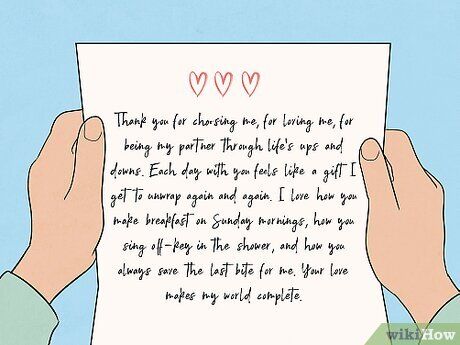 Thank you for choosing me, for loving me, for
being my partner through life's ups and
downs. Each day with you feels like a gift I
get to unwrap again and again. I love how you
make breakfast on Sunday mornings, how you
sing off-key in the shower, and how you
always save the last bite for me. Your love
makes my world complete.
wikiHow